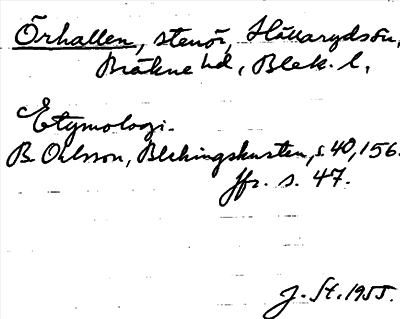 Örhallen, stenör, Hällarydsön,
Bräkne hd, Blek. l.
Etymologi.
B. Ohlsson, Blekingskusten, s. 40, 156.
Jfr. s. 47.
J. St. 1955.